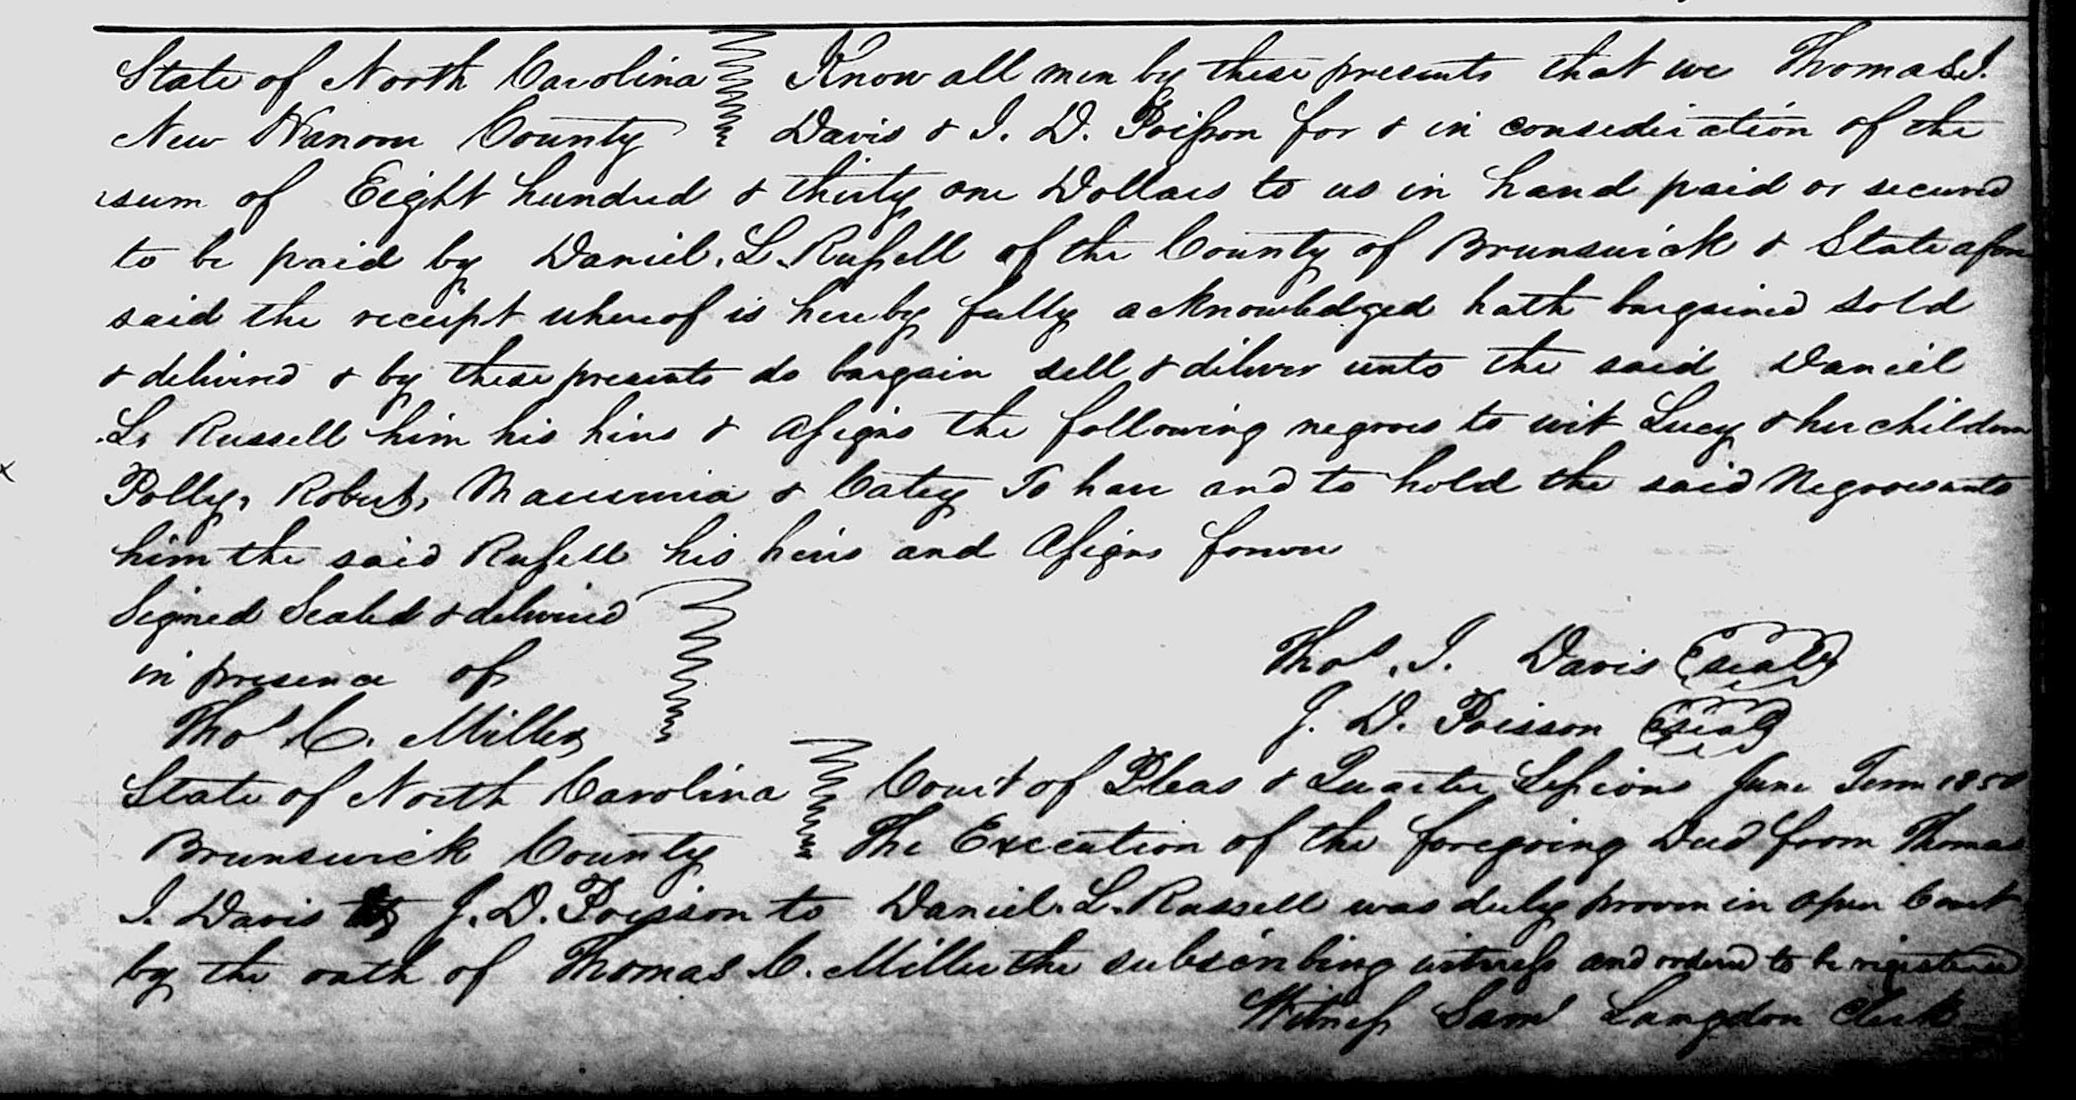 State of North Carolina Know all men by these presents that we Thomas I.
New Hanover County Davis & I. D. Poisson for & in consideration of the
sum of Eight hundred & thirty one Dollars to us in hand paid or secured
to be paid by Daniel. L. Russell of the County of Brunswick & State afore
said the receipt whereof is hereby fully acknowledged hath bargained sold
& delivered & by these presents do bargain sell & deliver unto the said Daniel
L. Russell him his heirs & assigns the following negroes to wit Lucy & her children
Polly, Robert, & Catey To have and to hold the said Negroes unto
him the said Russell his heirs and assigns forever
Signed Sealed & delivered
in presence of
Thos. I. Davis (seal)
J. D. Poisson (seal)
Thos C. Miller
State of North Carolina Court of Pleas & Quarter Sessions June Term
Brunswick County The Execution of the foregoing Deed from Thomas
I. Davis J. D. Poisson to Daniel. L. Russell was duly proven in open Court
by the oath of Thomas C. Miller the subscribing witness and ordered to be registered
Witness Saml Langdon Clerk